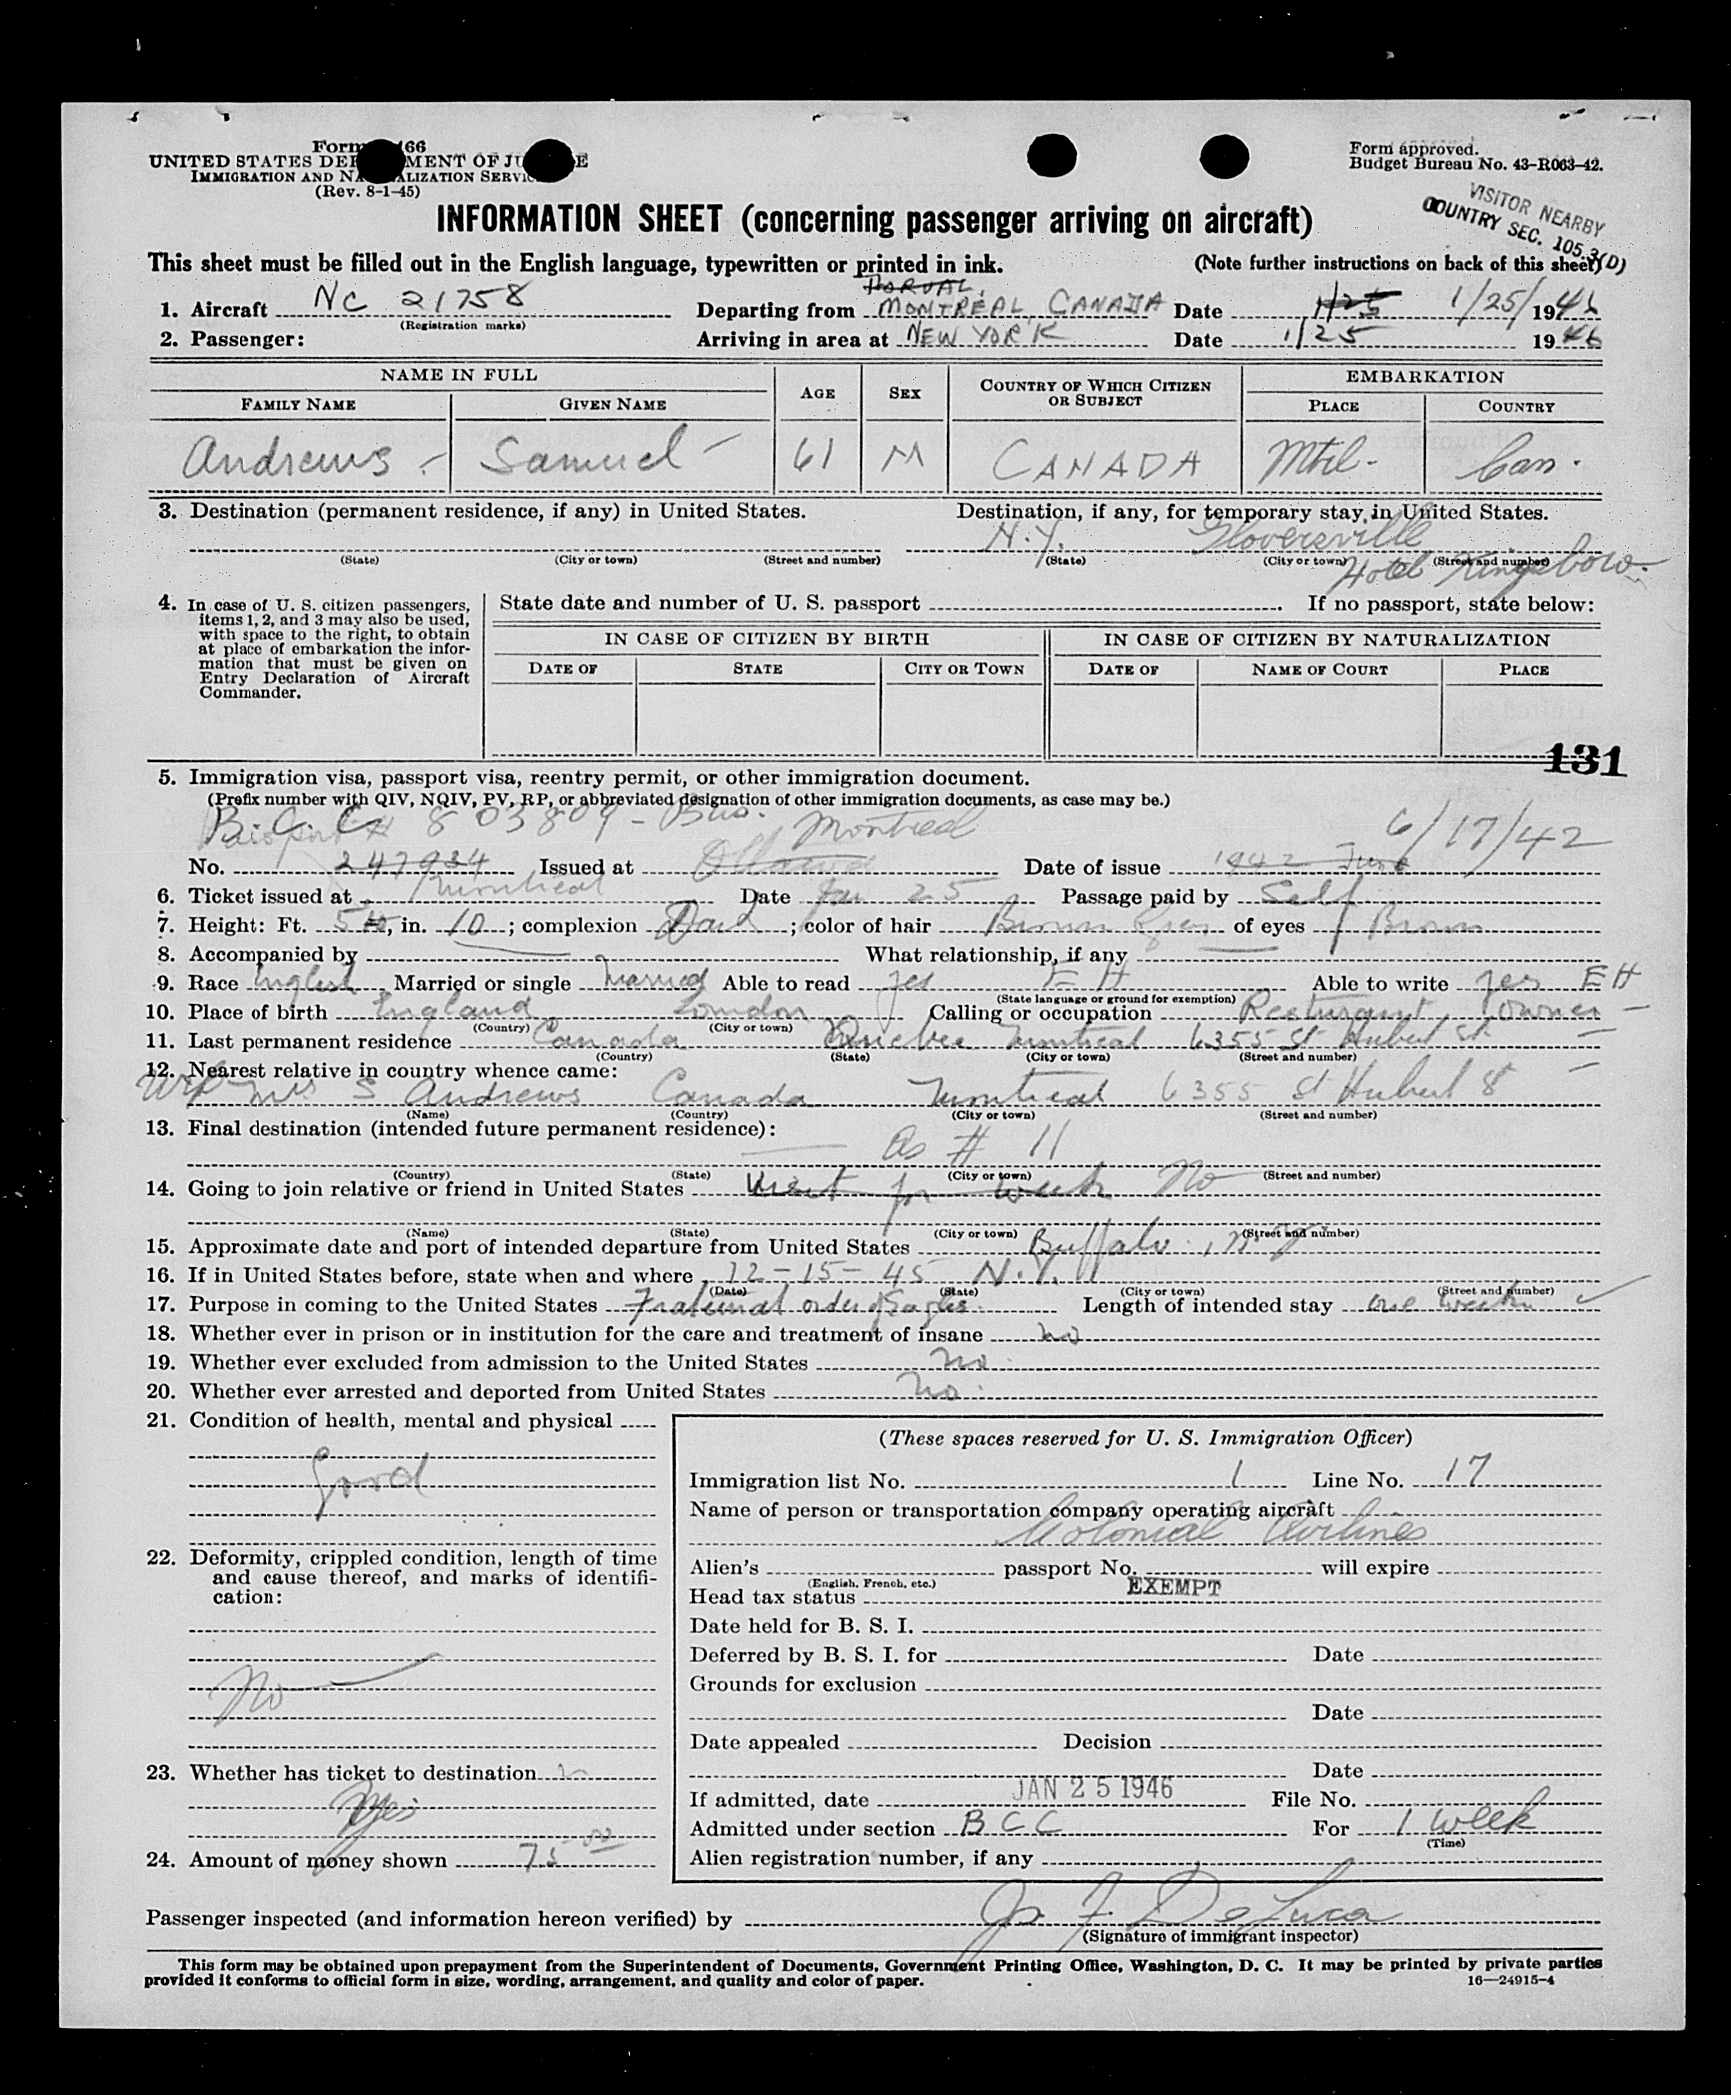 Form 66
UNITED STATES DEP MENT OF JU E
IMMIGRATION AND NA ALIZATION SERVIC
(Rev. 8-1-45)
Form approved.
Budget Bureau No. 43-R063-42.
VISITOR NEARBY
COUNTRY SEC. 105.3(D)
INFORMATION SHEET (concerning passenger arriving on aircraft)
This sheet must be filled out in the English language, typewritten or printed in ink. (Note further instructions on back of this sheet)
DORVAL,
1. Aircraft NC 21758 Departing from MONTREAL, CANADA Date 1/25 1/25/1946
(Registration marks)
2. Passenger: Arriving in area at NEW YORK Date 1/25 1946
NAME IN FULL AGE SEX COUNTRY OF WHICH CITIZEN OR SUBJECT EMBARKATION
FAMILY NAME GIVEN NAME PLACE COUNTRY
Andrews - Samuel - 61 M CANADA Mtl - Can.
3. Destination (permanent residence, if any) in United States. Destination, if any, for temporary stay in United States.
N.Y. Gloversville
(State) (City or town) (Street and number) (State) (City or town) (Street and number)
Hotel Kingsboro -
4. In case of U. S. citizen passengers, items 1, 2, and 3 may also be used, with space to the right, to obtain at place of embarkation the information that must be given on Entry Declaration of Aircraft Commander.
State date and number of U. S. passport . If no passport, state below:
IN CASE OF CITIZEN BY BIRTH IN CASE OF CITIZEN BY NATURALIZATION
DATE OF STATE CITY OR TOWN DATE OF NAME OF COURT PLACE
131
5. Immigration visa, passport visa, reentry permit, or other immigration document.
(Prefix number with QIV, NQIV, PV, RP, or abbreviated designation of other immigration documents, as case may be.)
B.C.C. 803809 - Bus. Montreal 6/17/42
Passport #
No. 247934 Issued at Ottawa Date of issue 1942 June
6. Ticket issued at Montreal Date Jan 25 Passage paid by Self
7. Height: Ft. 5, in. 10; complexion Dark; color of hair Brown of eyes Brown
8. Accompanied by — What relationship, if any —
9. Race English Married or single Married Able to read yes EH Able to write yes EH
(State language or ground for exemption)
10. Place of birth England London Calling or occupation Resturant Owner -
(Country) (City or town)
11. Last permanent residence Canada Quebec Montreal 6355 St Hubert St -
(Country) (State) (City or town) (Street and number)
12. Nearest relative in country whence came:
Wife Mrs S Andrews Canada Montreal 6355 St Hubert St
(Name) (Country) (City or town) (Street and number)
13. Final destination (intended future permanent residence):
— As # 11
(Country) (State) (City or town) (Street and number)
14. Going to join relative or friend in United States Visit for week No
(Name) (State) (City or town) (Street and number)
15. Approximate date and port of intended departure from United States Buffalo, N.Y.
16. If in United States before, state when and where 12-15-45 N.Y.
(Date) (State) (City or town) (Street and number)
17. Purpose in coming to the United States Fraternal order of Eagles. Length of intended stay one week ✓
18. Whether ever in prison or in institution for the care and treatment of insane no
19. Whether ever excluded from admission to the United States no.
20. Whether ever arrested and deported from United States no.
21. Condition of health, mental and physical
Good
22. Deformity, crippled condition, length of time and cause thereof, and marks of identification:
No —
23. Whether has ticket to destination
Yes
24. Amount of money shown 75 00
(These spaces reserved for U. S. Immigration Officer)
Immigration list No. 1 Line No. 17
Name of person or transportation company operating aircraft
Colonial Airlines
Alien's passport No. will expire
(English, French, etc.)
Head tax status EXEMPT
Date held for B. S. I.
Deferred by B. S. I. for Date
Grounds for exclusion
Date
Date appealed Decision
Date
If admitted, date JAN 25 1946 File No.
Admitted under section BCC For 1 week
(Time)
Alien registration number, if any
Passenger inspected (and information hereon verified) by J. F. DeLuca
(Signature of immigrant inspector)
This form may be obtained upon prepayment from the Superintendent of Documents, Government Printing Office, Washington, D. C. It may be printed by private parties
provided it conforms to official form in size, wording, arrangement, and quality and color of paper. 16—24915-4